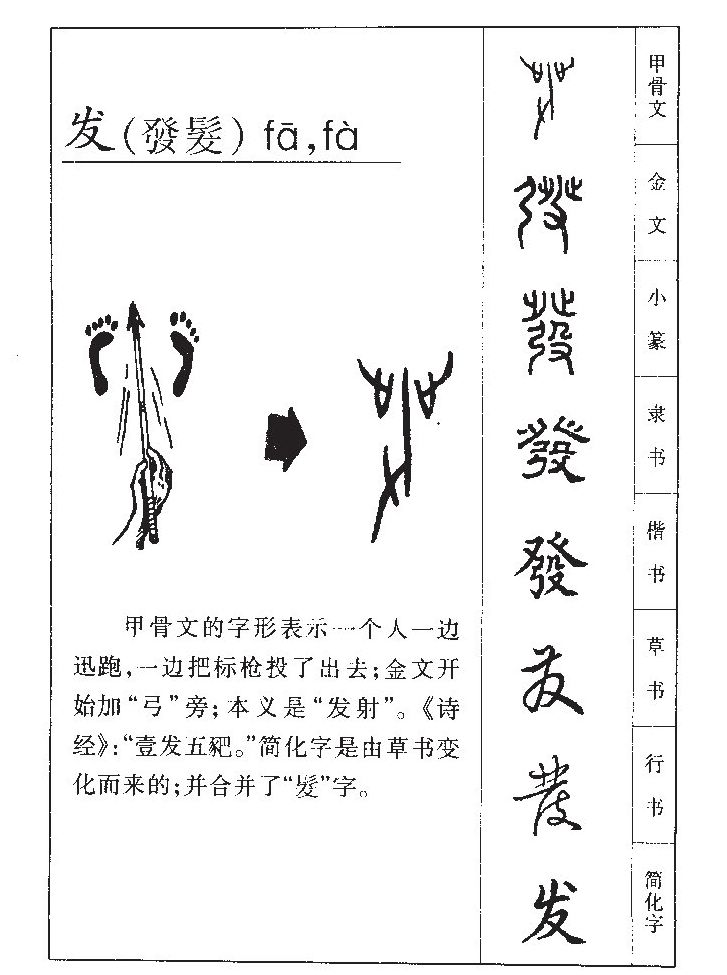 发(發髮) fā,fà
甲骨文的字形表示一个人一边
迅跑,一边把标枪投了出去;金文开
始加“弓”旁;本义是“发射”。《诗
经》:“壹发五豝。”简化字是由草书变
化而来的;并合并了“髮”字。
甲骨文
金文
小篆
隶书
發
楷书
發
草书
行书
简化字
发